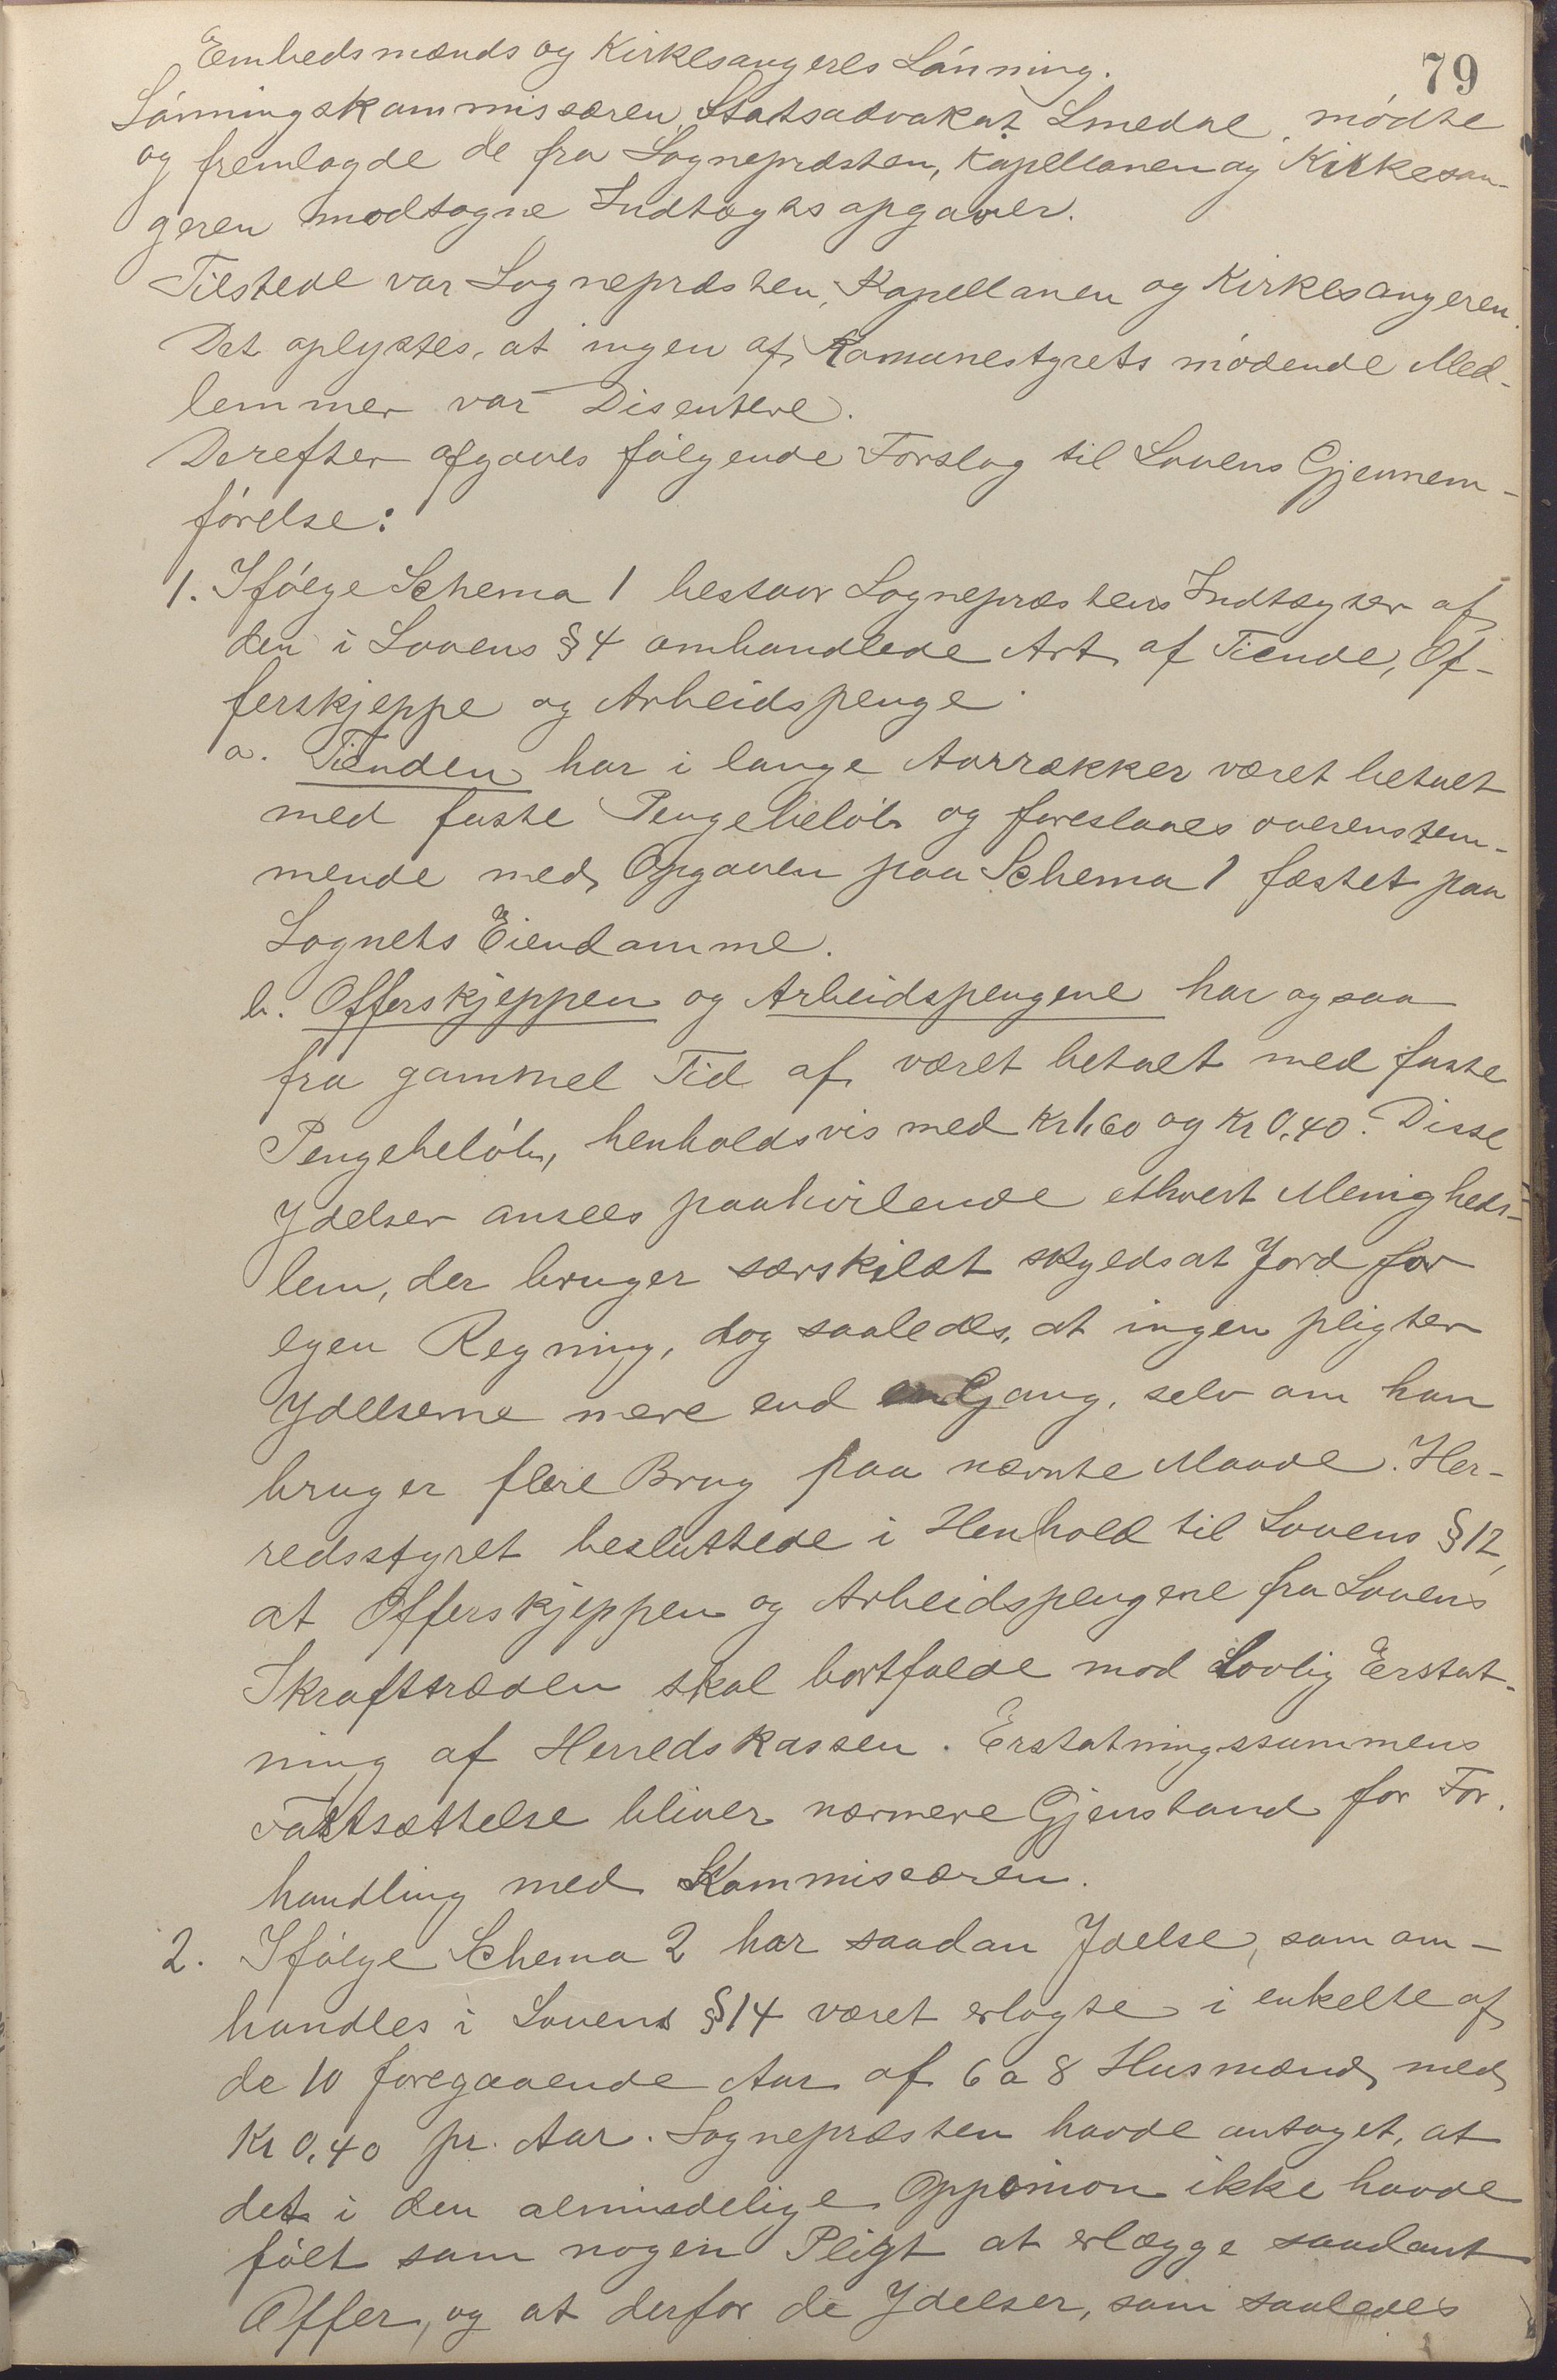 79
Embedsmænds og Kirkesangeres Lönning.
Lönningskommissæren Statsadvokat Smedal mödte
og fremlagde de fra Sognepræsten, Kapellanen og Kirkesan-
geren modtagne Indtægtsopgaver.
Tilstede var Sognepræsten, Kapellanen og Kirkesangeren.
Det oplystes, at ingen af Komunestyrets mödende Med-
lemmer var Disentere.
Derefter afgaves fölgende Forslag til Lovens Gjennem-
förelse:
1. Ifölge Schema 1 bestaar Sognepræstens Indtægter af
den i Lovens § 4 omhandlede Art af Tiende, Of-
ferskjeppe og Arbeidspenge
a. Tienden har i lange Aarrækker været betalt
med faste Pengebelöb og foreslaaes overenstem-
mende med Opgaven paa Schema 1 fæstet paa
Sognets Eiendomme.
b. Offerskjeppen og Arbeidspengene har ogsaa
fra gammel Tid af været betalt med faste
Pengebelöb, henholdsvis med Kr 1,60 og Kr 0,40. Disse
Ydelser ansees paahvilende ethvert Menigheds-
lem, der bruger særskilt skyldsat Jord for
egen Regning, dog saaledes, at ingen pligter
Ydelserne mere end en Gang, selv om han
bruger flere Brug paa nævnte Maade. Her-
redsstyret besluttede i Henhold til Lovens § 12,
at Offerskjeppen og Arbeidspengene fra Lovens
Ikrafttræden skal bortfalde mod Lovlig Erstat-
ning af Herredskassen. Erstatningssummens
Fastsættelse bliver nærmere Gjenstand for For-
handling med Kommissæren.
2. Ifölge Schema 2 har saadan Ydelse, som om-
handles i Lovens § 14 været erlagte i enkelte af
de 10 foregaaende Aar af 6 a 8 Husmænd med
Kr 0,40 pr. Aar. Sognepræsten havde antaget, at
det i den almindelige Oppinion ikke havde
fölt som nogen Pligt at erlægge saadant
Offer, og at derfor de Ydelser, som saaledes